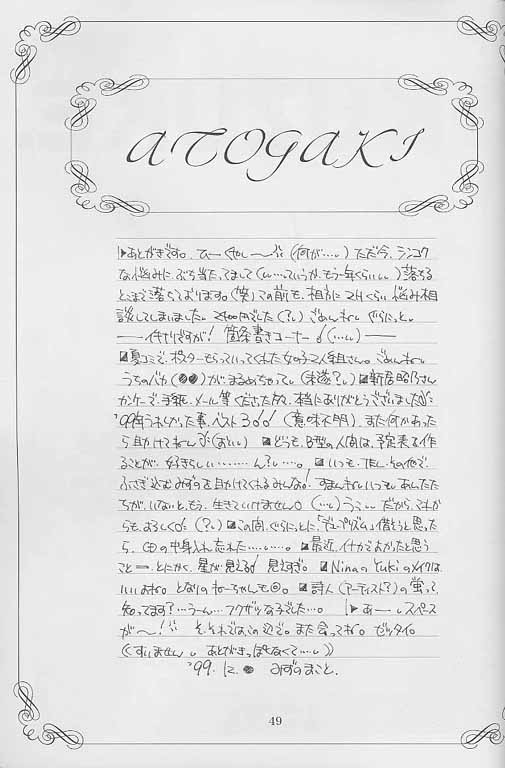 ATOGAKI
あとがきです。ひーくやしー (何が…) ただ今、シンコク
な悩みに、ぶち当たってまして (い…っていうか、もう一年くらい) 落ちる
とこまで落ちております。(笑) この前も、相方に 2Hくらい 悩み相
談してしまいました。2400円でした (?) ごめんねー ぐらにっと。
――代わりですが! 箇条書きコーナー (…) ――
夏コミで、ポスターもらっていってくれた女の子2人組さん。ごめんねー
うちのバカ (●●) が まるめちゃって (未遂?) 新居昭乃さん
で、手紙、メール等 くださた方、本当にありがとうございました
'99年うれしかった事、ベスト3 (意味不明) また何かあった
ら 助けてねー (おい) どうも、B型の人間は、予定表を作
ることが、好きらしい………ん?…。 いつも、その他で、
ふさぎ込むみずのを助けてくれるみんな! すまんねー いつも。あんたた
ちが、いないと、もう、生きていけません。(…) うっ…だから、これか
らも、よろしく (?) この間、ぐらにっとに「デュープリズム」借そうと思った
ら、CDの中身入れ忘れた………。 最近、よかったと思う
こと＝とにかく、星が見える! 見えすぎ。 NinaのYukiのメイクは、
いいよね。となりのねーちゃんも◎。 詩人 (アーティスト?) の蛍って、
知ってます?…うーん…フクザツな子でした…。 あー スペース
がー! そ、それでは、この辺で。また会ってね。ゼッタイ。
((すいません あとがきっぽくなくて…))
'99. 12. ● みずのまこと.
49